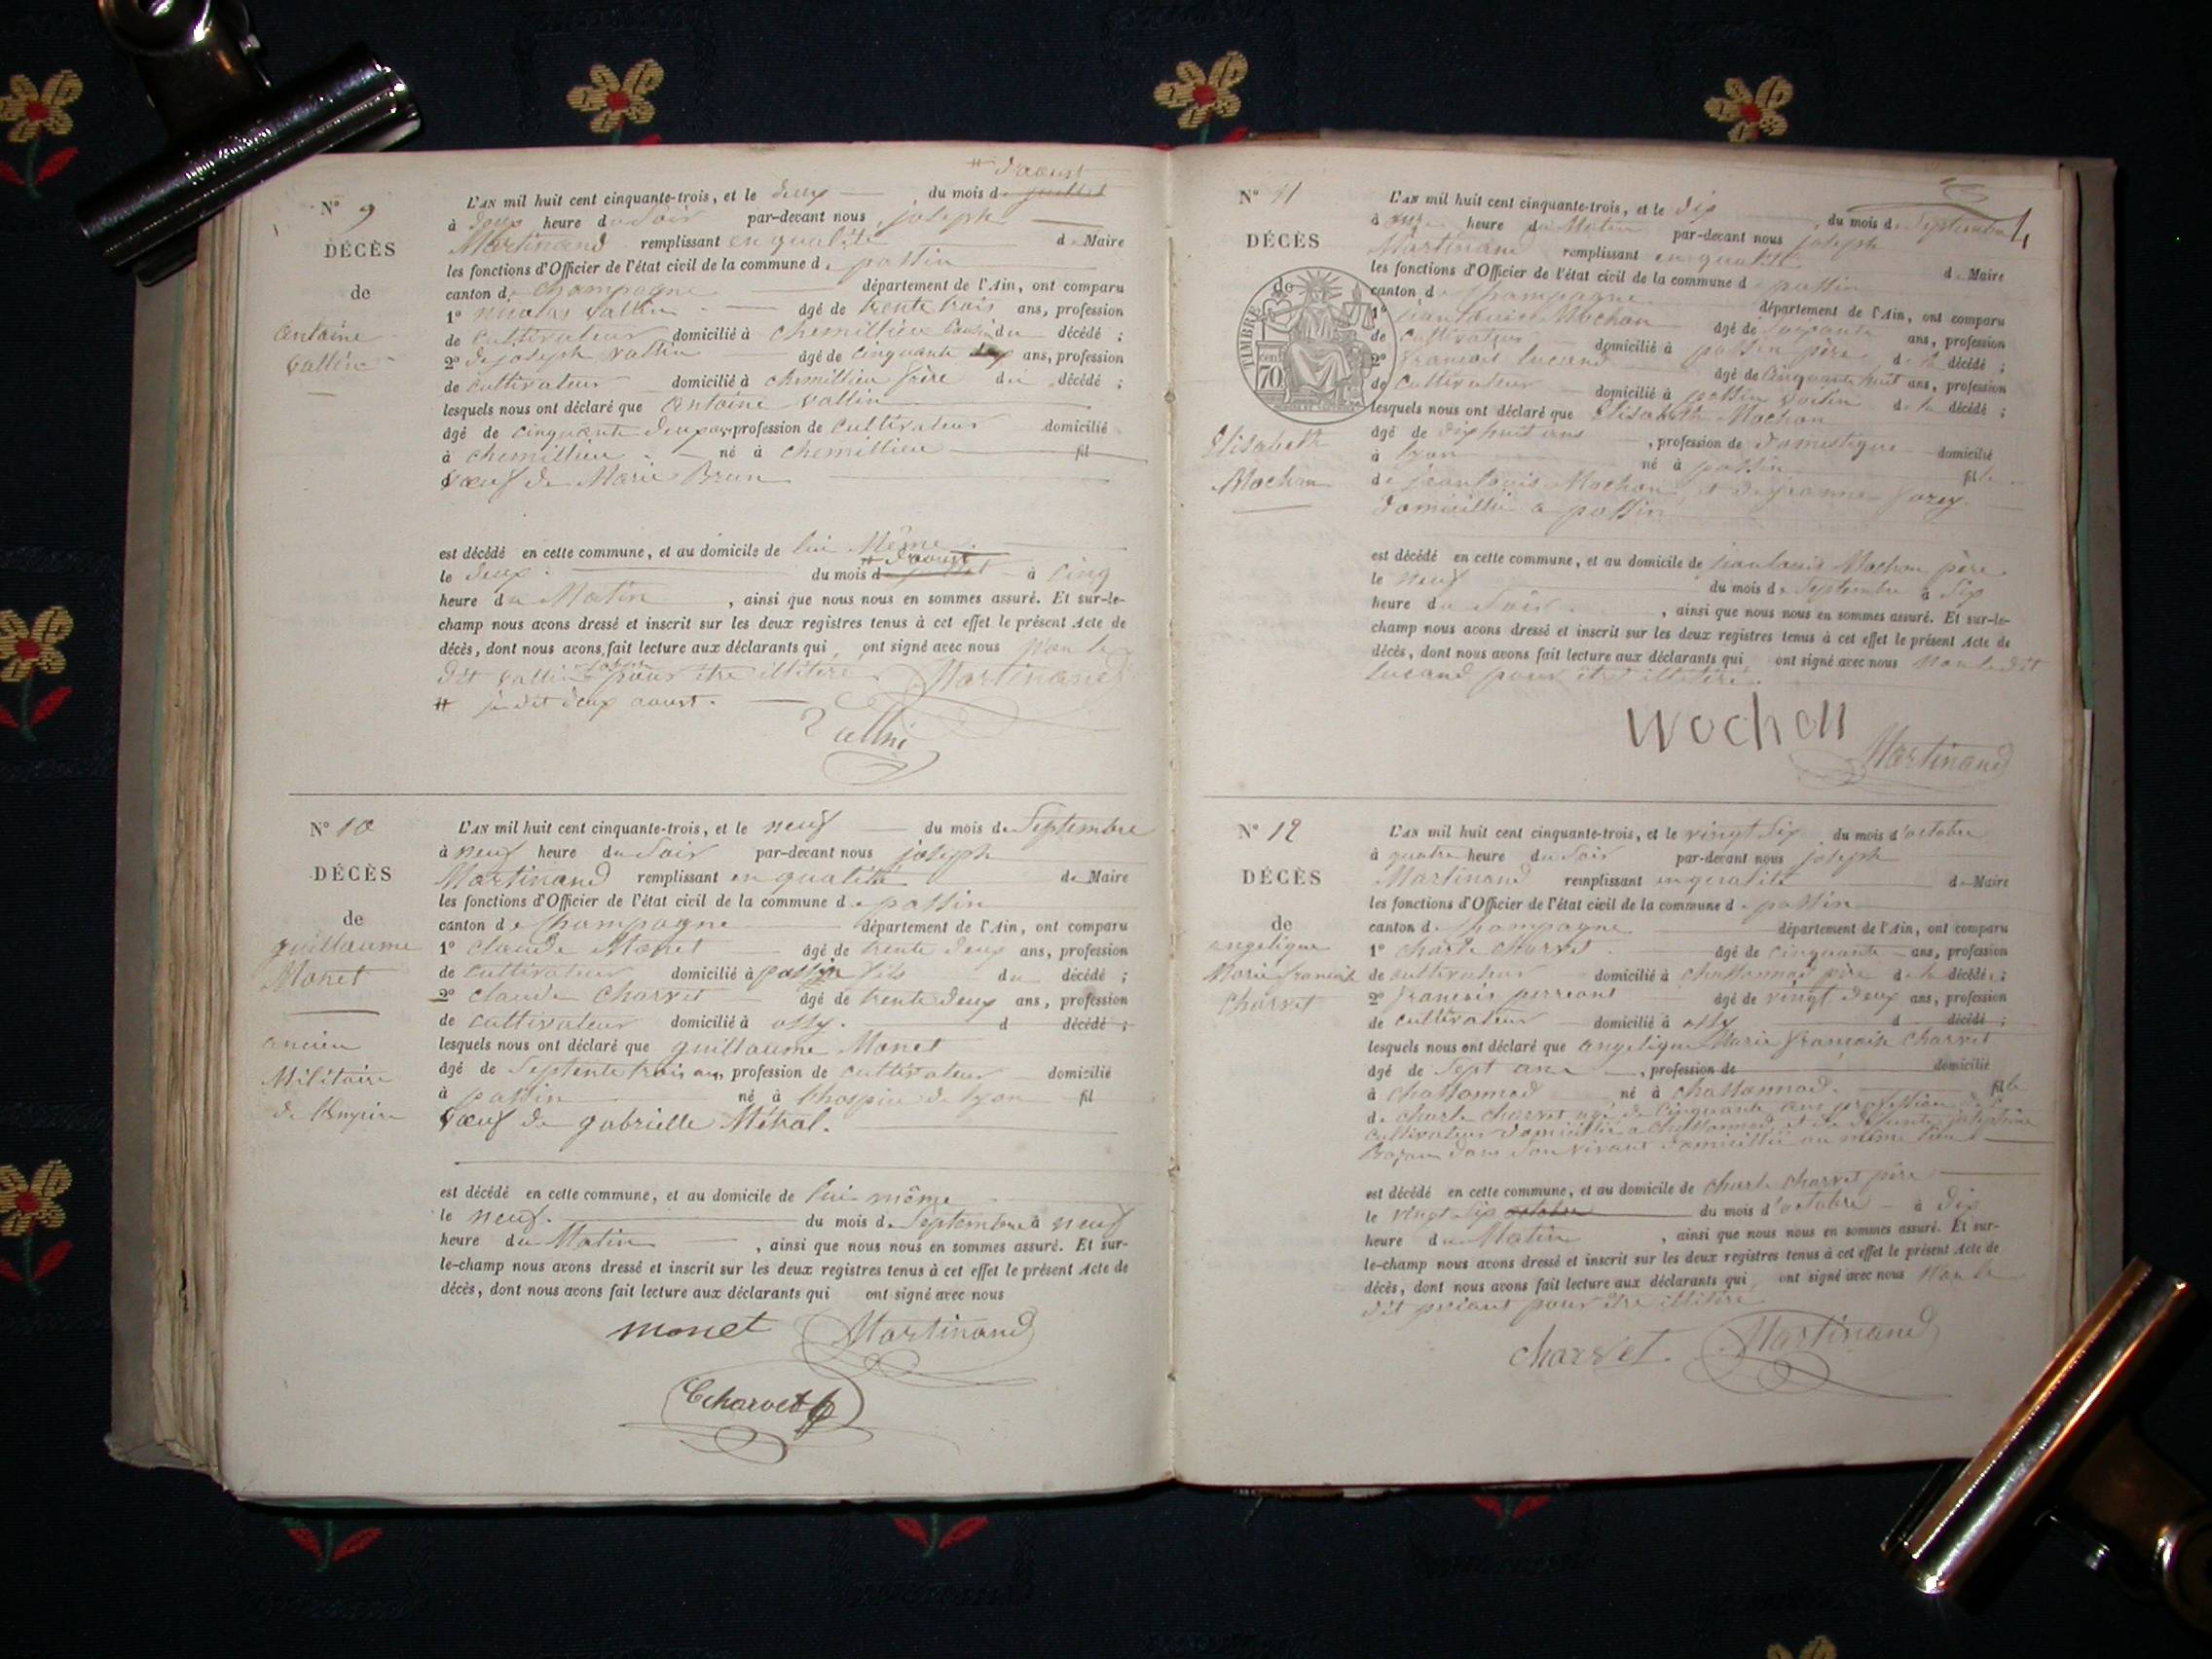 # d'aoust
N° 9
DÉCÈS
de
antoine
vallin
L'AN mil huit cent cinquante-trois, et le deux du mois de juillet
à deux heure du Soir par-devant nous joseph
Martinand remplissant en qualité de Maire
les fonctions d'Officier de l'état civil de la commune de passin
canton de champagne département de l'Ain, ont comparu
1° nicolas vallin âgé de trente trois ans, profession
de cultivateur domicilié à chemillieu cousin du décédé ;
2° de joseph vallin âgé de cinquante ans, profession
de cultivateur domicilié à chemillieu frère du décédé ;
lesquels nous ont déclaré que antoine vallin
âgé de cinquante deux ans, profession de cultivateur domicilié
à chemillieu né à chemillieu fil
vœuf de Marie Brun
est décédé en cette commune, et au domicile de lui Même
# d'aoust
le deux du mois de juillet à cinq
heure du Matin , ainsi que nous nous en sommes assuré. Et sur-le-
champ nous avons dressé et inscrit sur les deux registres tenus à cet effet le présent Acte de
décès, dont nous avons fait lecture aux déclarants qui ont signé avec nous Non le
dit vallin joseph pour être illitéré Martinand
# je dit deux aoust.
Vallin
N° 10
DÉCÈS
de
guillaume
Monet
ancien
Militaire
de l'Empire
L'AN mil huit cent cinquante-trois, et le neuf du mois de Septembre
à neuf heure du Soir par-devant nous joseph
Martinand remplissant en qualité de Maire
les fonctions d'Officier de l'état civil de la commune de passin
canton de champagne département de l'Ain, ont comparu
1° claude Monet âgé de trente deux ans, profession
de cultivateur domicilié à passin fils du décédé ;
2° claude Charvet âgé de trente deux ans, profession
de cultivateur domicilié à ossy. d décédé ;
lesquels nous ont déclaré que guillaume Monet
âgé de Septente trois ans, profession de cultivateur domicilié
à passin né à l'hospice de lyon fil
vœuf de gabrielle Métral.
est décédé en cette commune, et au domicile de lui même
le neuf. du mois de Septembre à neuf
heure du Matin , ainsi que nous nous en sommes assuré. Et sur-
le-champ nous avons dressé et inscrit sur les deux registres tenus à cet effet le présent Acte de
décès, dont nous avons fait lecture aux déclarants qui ont signé avec nous
monet Martinand
Ccharvet
N° 11
DÉCÈS
de
TIMBRE
70
Elisabeth
Mochon
L'AN mil huit cent cinquante-trois, et le dix du mois de Septembre
à heure du Matin par-devant nous joseph
Martinand remplissant en qualité de Maire
les fonctions d'Officier de l'état civil de la commune de passin
canton de champagne département de l'Ain, ont comparu
1° jean louis Mochon âgé de Soixante ans, profession
de cultivateur domicilié à passin père de la décédé ;
2° francois lucand âgé de cinquante huit ans, profession
de cultivateur domicilié à passin voisin de la décédé ;
lesquels nous ont déclaré que Elisabeth Mochon
âgé de dix huit ans , profession de domestique domicilié
à lyon né à passin fille
de jean louis Mochon et de jeanne
domicillié a passin
est décédé en cette commune, et au domicile de jean louis Mochon père
le neuf du mois de Septembre à Six
heure du Soir. , ainsi que nous nous en sommes assuré. Et sur-le-
champ nous avons dressé et inscrit sur les deux registres tenus à cet effet le présent Acte de
décès, dont nous avons fait lecture aux déclarants qui ont signé avec nous Non le dit
lucand pour être illitéré.
Mochon
Martinand
N° 12
DÉCÈS
de
angelique
Marie francoise
Charvet
L'AN mil huit cent cinquante-trois, et le vingt Six du mois d'octobre
à quatre heure du Soir par-devant nous joseph
Martinand remplissant en qualité de Maire
les fonctions d'Officier de l'état civil de la commune de passin
canton de champagne département de l'Ain, ont comparu
1° charle charvet âgé de cinquante ans, profession
de cultivateur domicilié à chassonnod père de la décédé ;
2° francois âgé de vingt deux ans, profession
de cultivateur domicilié à ossy d décédé ;
lesquels nous ont déclaré que angelique Marie francoise Charvet
âgé de Sept ans , profession de domicilié
à chassonnod né à chassonnod. fille
de charle charvet agé de cinquante ans profession de
cultivateur domicillié a chassonnod et de défunte joséphine
dans Son vivant domicillié au même lieu
est décédé en cette commune, et au domicile de charle charvet père
le vingt Six octobre du mois d'octobre à dix
heure du Matin , ainsi que nous nous en sommes assuré. Et sur-
le-champ nous avons dressé et inscrit sur les deux registres tenus à cet effet le présent Acte de
décès, dont nous avons fait lecture aux déclarants qui ont signé avec nous Non le
dit pour être illitéré
charvet. Martinand